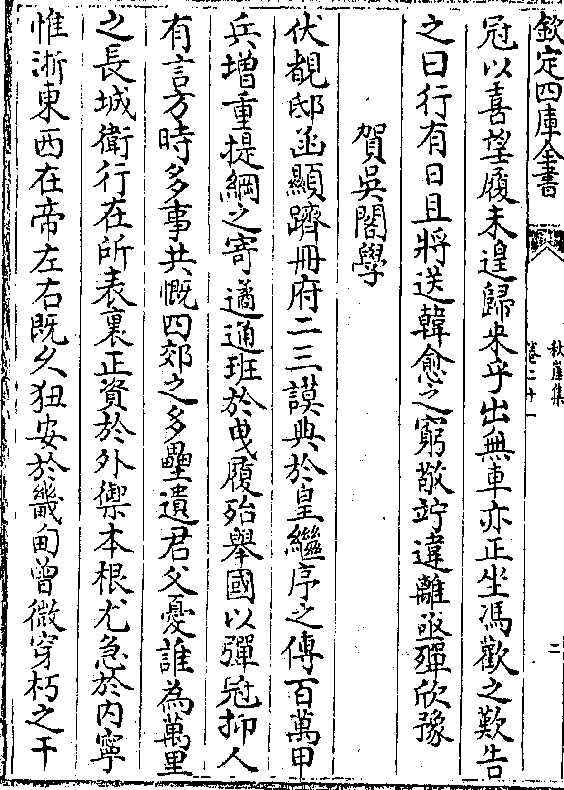 欽定四庫全書
秋崖集
卷二十一
二
冠以喜望履未遑歸來乎出無車亦正坐馮歡之歎告
之曰行有日且將送韓愈之窮敬竚違離亟殫欣豫
賀吳閣學
伏覩邸函顯躋冊府二三謨典於皇繼序之傳百萬甲
兵增重提綱之寄遹通班於曵履殆舉國以彈冠抑人
有言方時多事共慨四郊之多壘遺君父憂誰為萬里
之長城衛行在所表裏正資於外禦本根尤急於内寧
惟浙東西在帝左右既久狃安於畿甸曾微穿朽之干